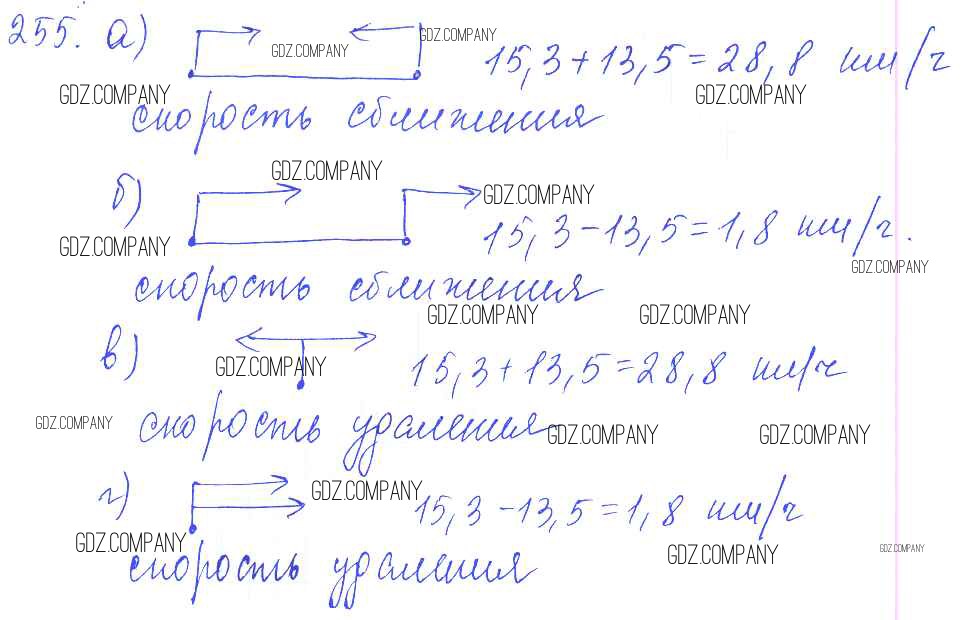 255. а) GDZ.COMPANY GDZ.COMPANY 15,3 + 13,5 = 28,8 км/ч
GDZ.COMPANY GDZ.COMPANY
скорость сближения
GDZ.COMPANY
б) GDZ.COMPANY 15,3 - 13,5 = 1,8 км/ч.
GDZ.COMPANY GDZ.COMPANY
скорость сближения
GDZ.COMPANY GDZ.COMPANY
в) GDZ.COMPANY 15,3 + 13,5 = 28,8 км/ч
GDZ.COMPANY скорость удаления GDZ.COMPANY GDZ.COMPANY
г) GDZ.COMPANY 15,3 - 13,5 = 1,8 км/ч
GDZ.COMPANY GDZ.COMPANY GDZ.COMPANY
скорость удаления